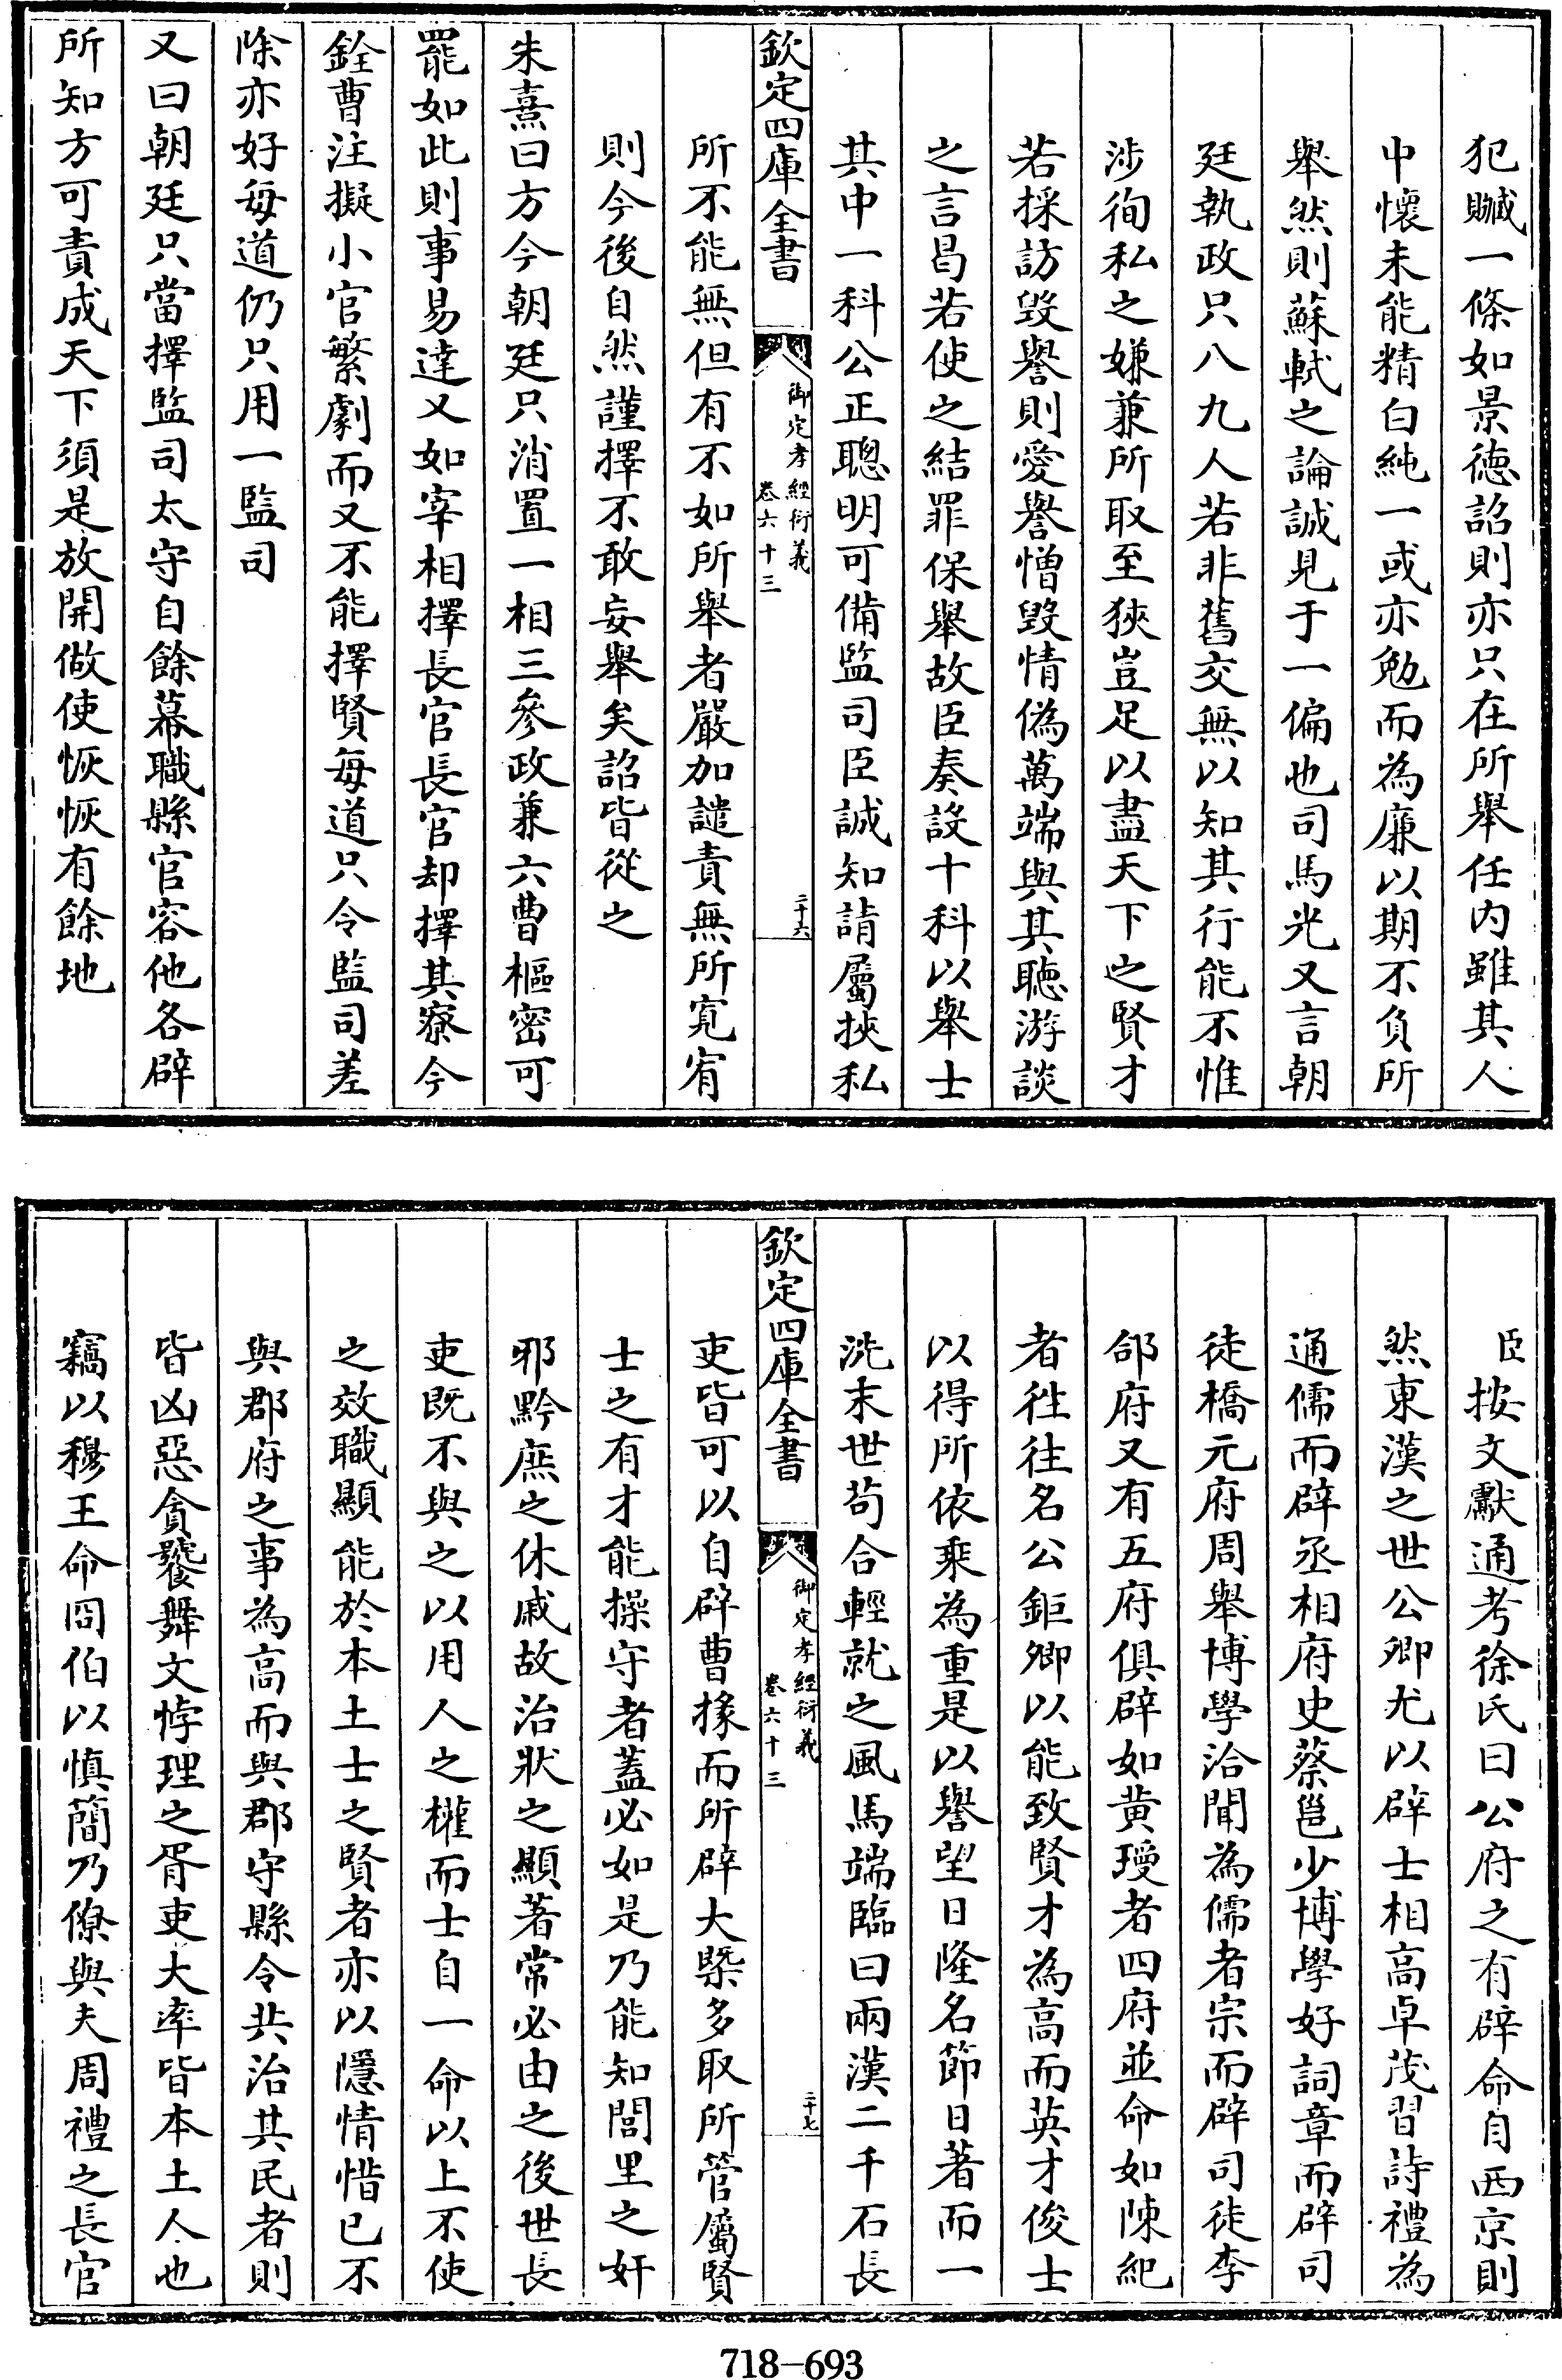 犯贓一條如景徳詔則亦只在所舉任内雖其人
中懷未能精白純一或亦勉而為廉以期不負所
舉然則蘇軾之論誠見于一偏也司馬光又言朝
廷執政只八九人若非舊交無以知其行能不惟
涉徇私之嫌兼所取至狹豈足以盡天下之賢才
若採訪毀譽則愛譽憎毀情偽萬端與其聽游談
之言曷若使之結罪保舉故臣奏設十科以舉士
其中一科公正聰明可備監司臣誠知請屬挾私
欽定四庫全書
御定孝經衍義
卷六十三
二十六
所不能無但有不如所舉者嚴加譴責無所寛宥
則今後自然謹擇不敢妄舉矣詔皆從之
朱熹曰方今朝廷只消置一相三參政兼六曹樞密可
罷如此則事易達又如宰相擇長官長官却擇其寮今
銓曹注擬小官繁劇而又不能擇賢每道只令監司差
除亦好每道仍只用一監司
又曰朝廷只當擇監司太守自餘幕職縣官容他各辟
所知方可責成天下須是放開做使恢恢有餘地
臣按文獻通考徐氏曰公府之有辟命自西京則
然東漢之世公卿尤以辟士相高卓茂習詩禮為
通儒而辟丞相府史蔡邕少博學好詞章而辟司
徒橋元府周舉博學洽聞為儒者宗而辟司徒李
郃府又有五府俱辟如黄瓊者四府並命如陳紀
者徃往名公鉅卿以能致賢才為高而英才俊士
以得所依乗為重是以譽望日隆名節日著而一
洗末世茍合輕就之風馬端臨曰兩漢二千石長
欽定四庫全書
御定孝經衍義
卷六十三
二十七
吏皆可以自辟曹掾而所辟大槩多取所管屬賢
士之有才能操守者蓋必如是乃能知閭里之奸
邪黔庶之休戚故治狀之顯著常必由之後世長
吏既不與之以用人之權而士自一命以上不使
之效職顯能於本土士之賢者亦以隱情惜已不
與郡府之事為高而與郡守縣令共治其民者則
皆凶惡貪饕舞文悖理之胥吏大率皆本土人也
竊以穆王命冏伯以慎簡乃僚與夫周禮之長官
718-693